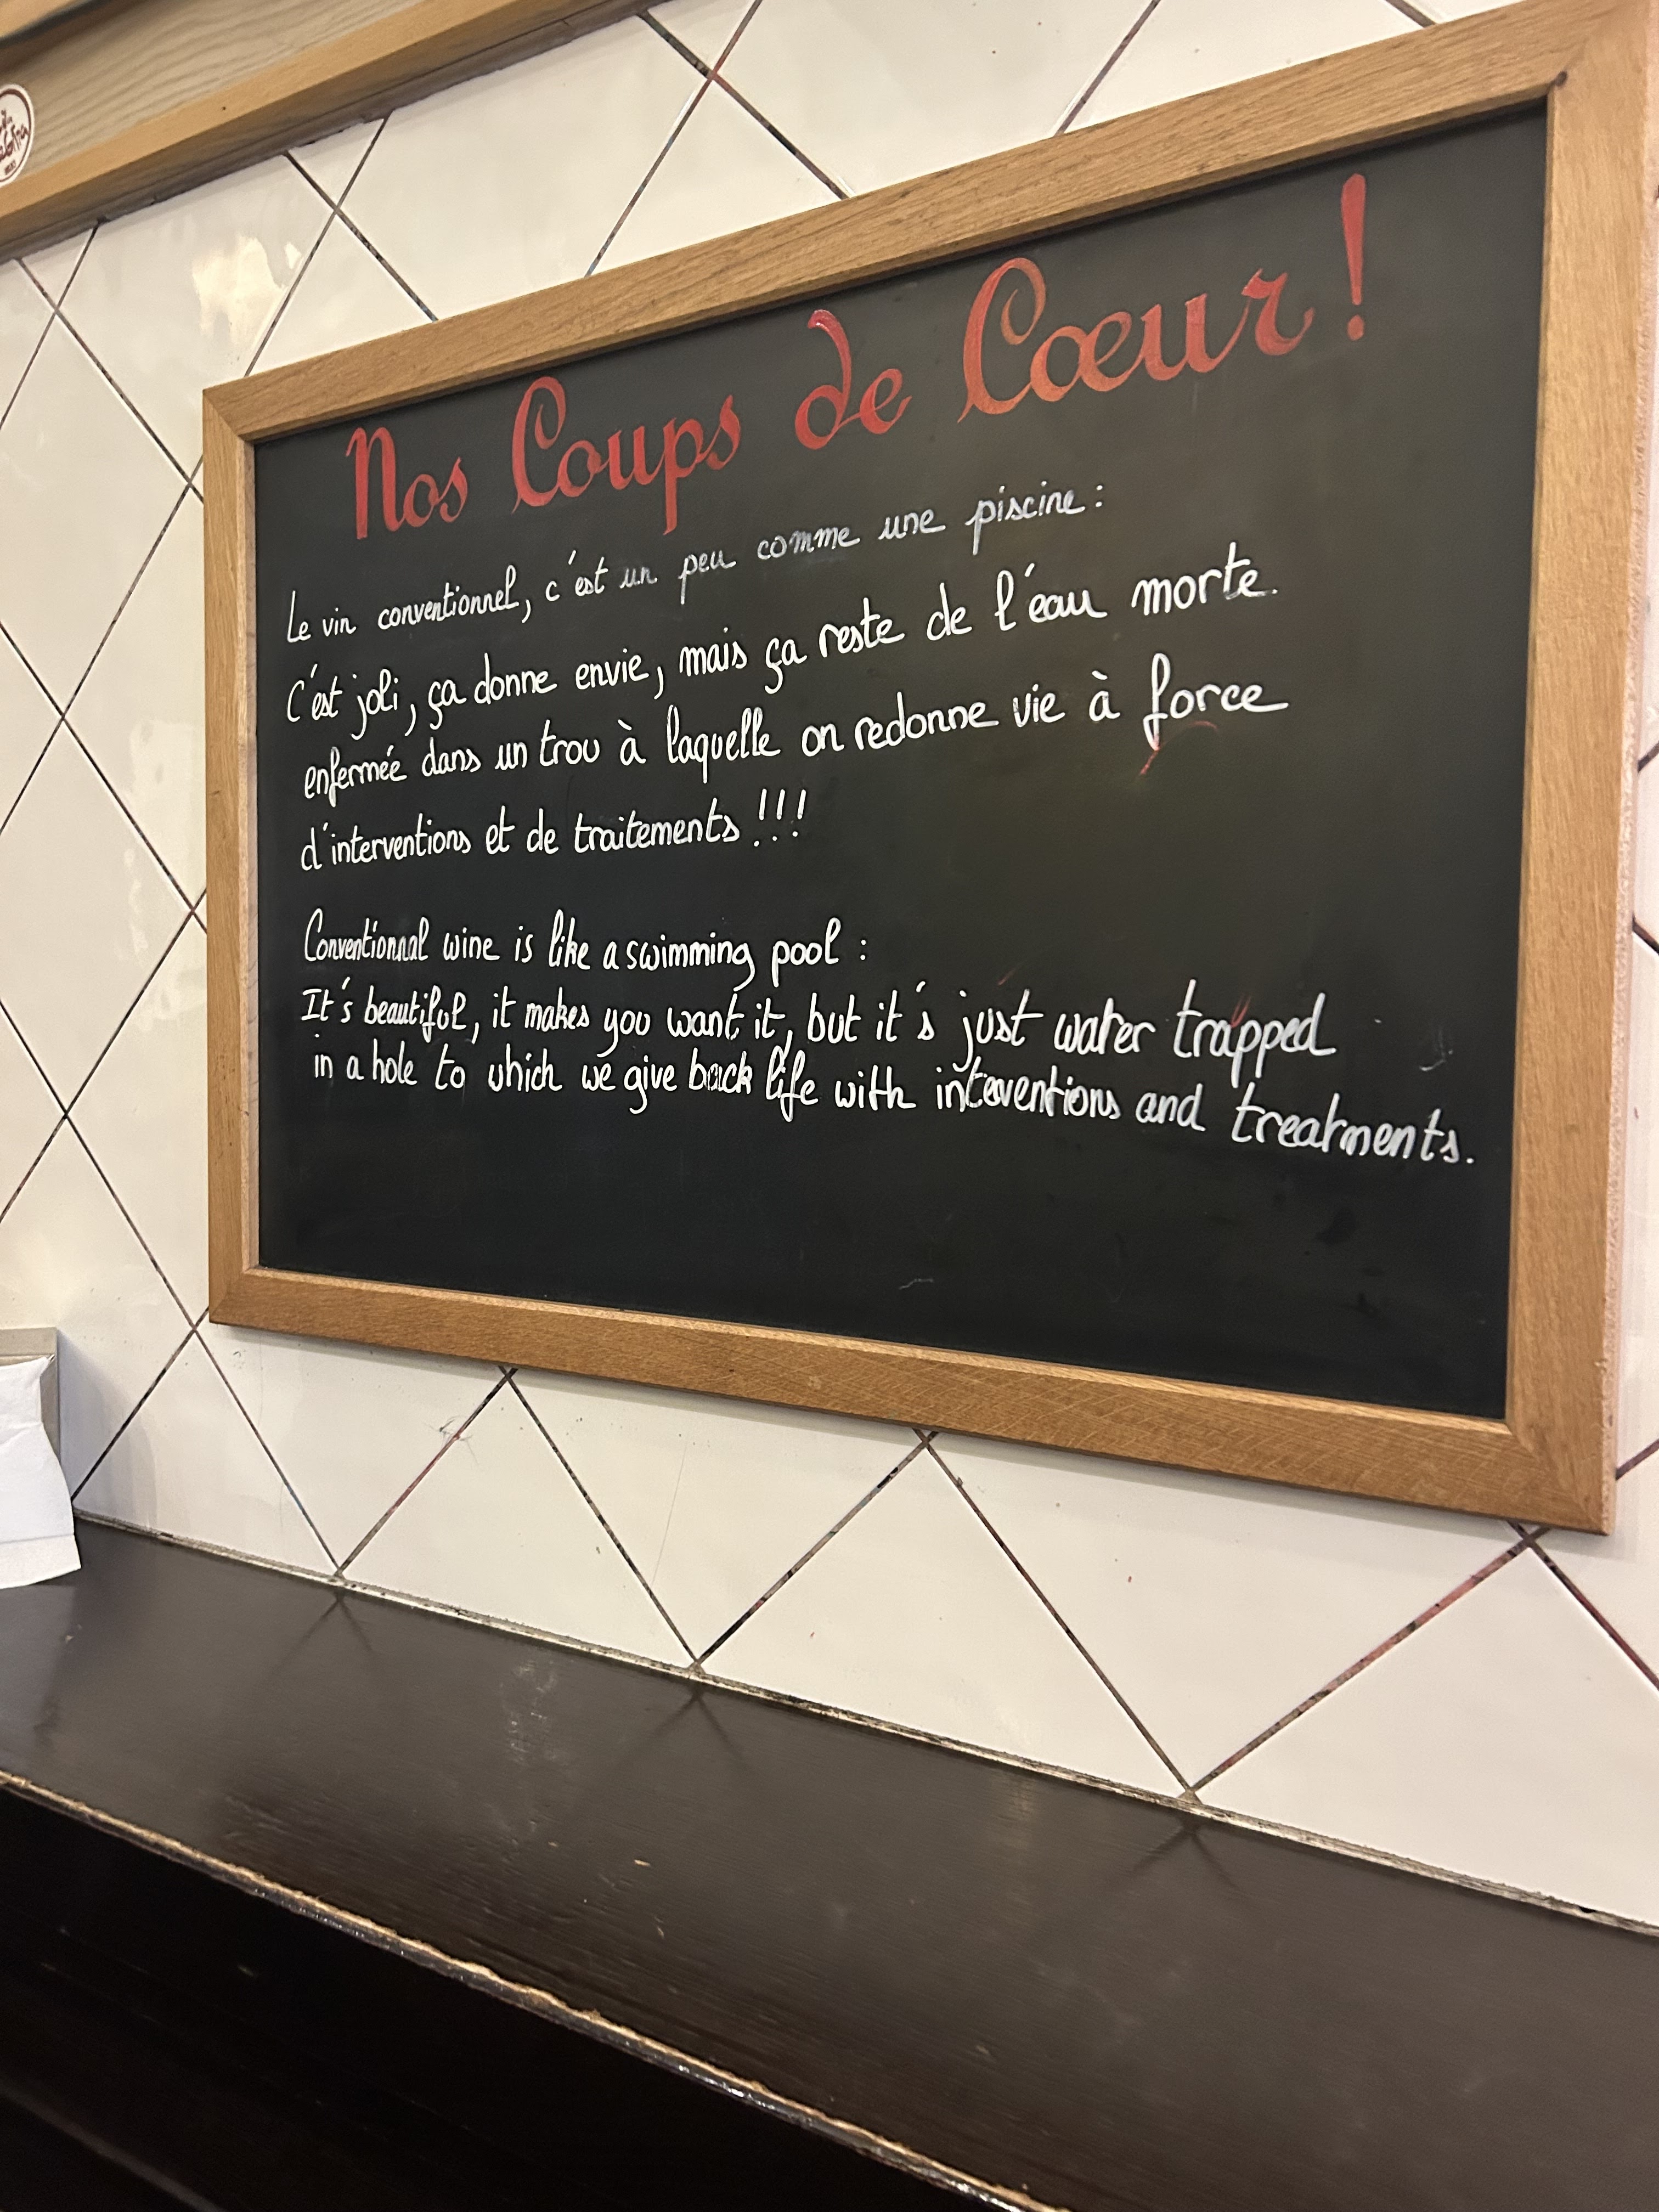 Nos Coups de Cœur !
Le vin conventionnel, c'est un peu comme une piscine :
C'est joli, ça donne envie, mais ça reste de l'eau morte.
enfermée dans un trou à laquelle on redonne vie à force
d'interventions et de traitements !!!
Conventionnal wine is like a swimming pool :
It's beautiful, it makes you want it, but it's just water trapped
in a hole to which we give back life with interventions and treatments.